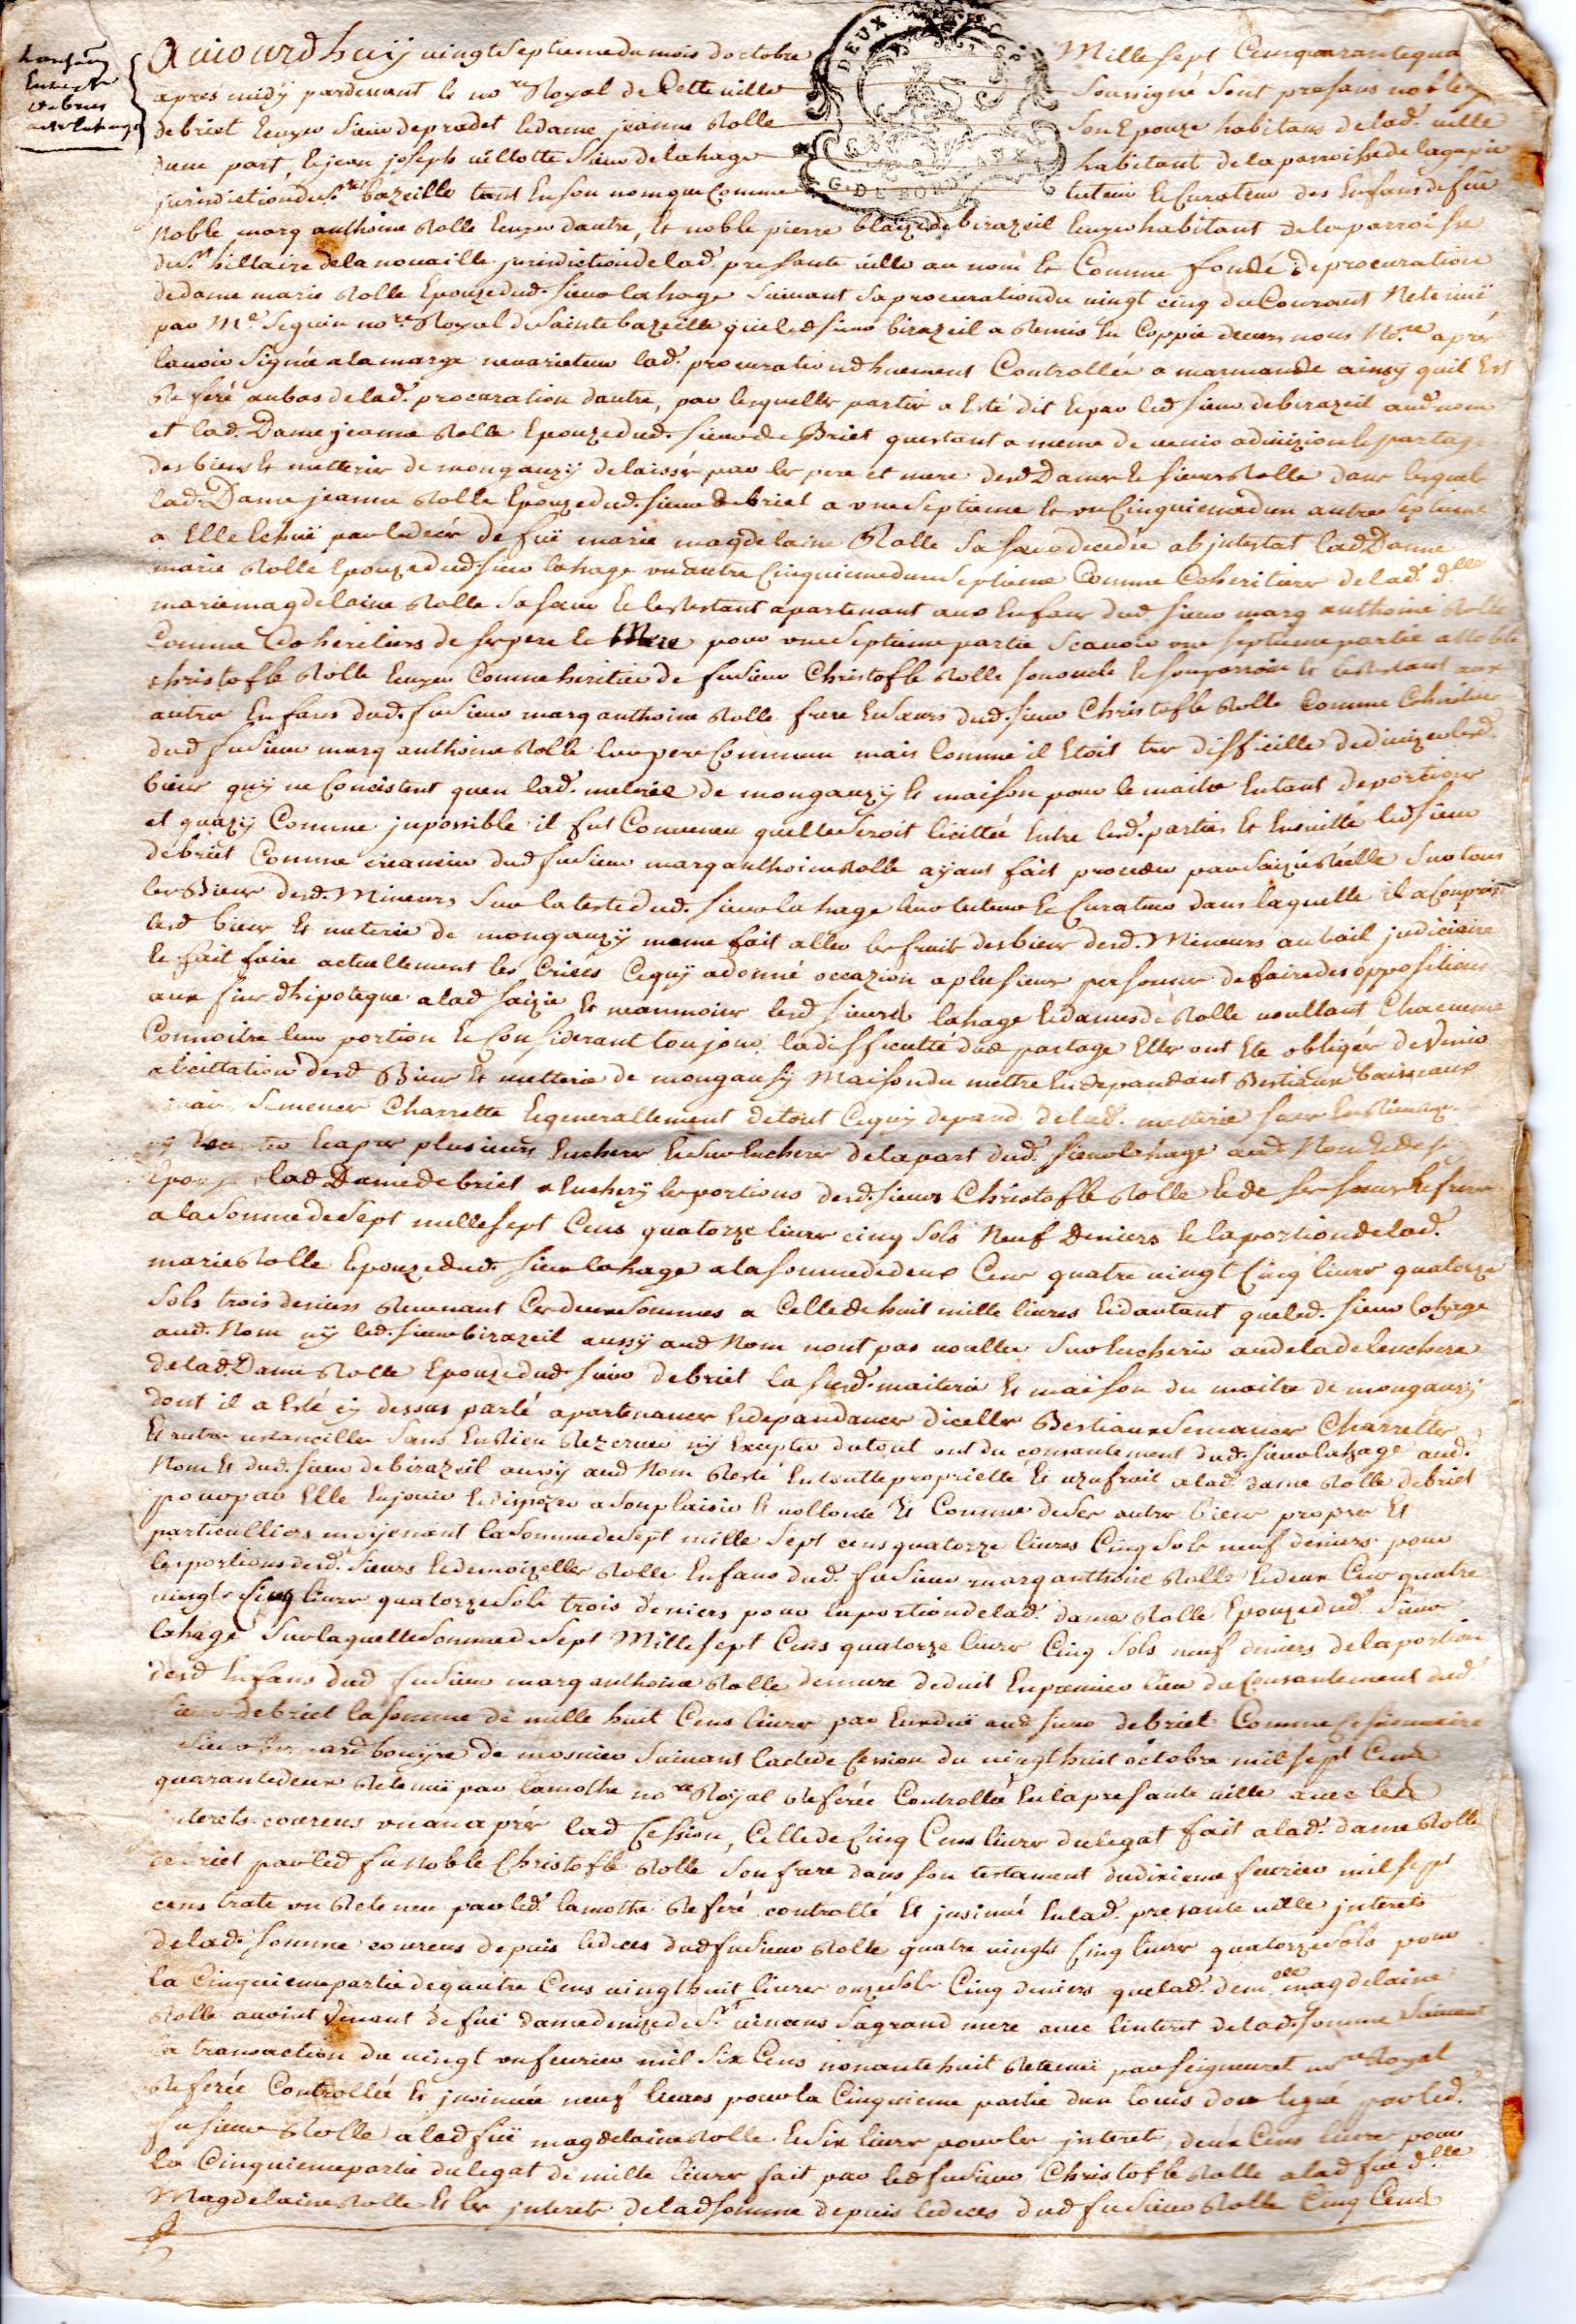 Aujourdhuy vingt Septieme du mois doctobre Mille sept Cens quarante qua
apres midy pardevant le no.re Royal de Cette ville Soussigné Sont presans noble
debriet Ecuyer Sieur depradet et dame jeanne Rolle Son Epouze habitans de lad. ville
dune part, Et jean joseph villotte Sieur de lahage habitant de la parroisse de lagupie
jurisdiction de S.te bazeille tant En son nom que Comme tuteur Et Curateur des Enfans de feu
Noble marq anthoine Rolle Ecuyer dautre, Et noble pierre blaize de birazeil Ecuyer habitant de la parroisse
de S.t hillaire de la nouaille jurisdiction de lad. presante ville au nom Et Comme fondé de procuration
de dame marie Rolle Epouze dud. Sieur lahage Suivant Sa procuration du vingt cinq du Courant Retenüe
par M.e Seguin no.re Royal de Sainte bazeille que led. Sieur birazeil a Remis En Coppie devers nous No.re apres
lavoir Signée a la marge nevarietur lad. procuration dhuement Controllée a marmande ainsy quil Est
Referé au bas de lad. procuration dautre, par lesquelles parties a Esté dit Et par led. Sieur de birazeil aud. nom
et lad. Dame jeanne Rolle Epouze dud. Sieur de Briet questant a meme de venir a divizion Et partage
des biens Et metterie de mongauzÿ delaissés par les pere et mere desd. Dames Et Sieurs Rolle dans lesquels
lad. Dame jeanne Rolle Epouze dud. Sieur debriet a une Septieme Et un Cinquieme dun autre Septieme
a Elle Echuë par le decés de füe marie magdelaine Rolle Sa Sœur decedée abjntestat lad. Dame
marie Rolle Epouze dud. Sieur lahage un autre Cinquieme dun Septieme Comme Coheritiere de lad. d.lle
marie magdelaine Rolle Sa Sœur Et le Restant apartenant aux Enfans dud. Sieur marq anthoine Rolle
Comme Coheritiers de ses pere Et Mere pour une Septieme partie Scavoir une Septieme partie a Noble
christofle Rolle Ecuyer Comme heritier de feu Sieur Christofle Rolle Son oncle Et Son parrain Et le Restant aux
autres Enfans dud. feu Sieur marq anthoine Rolle frere Et Sœurs dud. Sieur Christofle Rolle Comme Coheritiers
dud. feu Sieur marq anthoine Rolle leur pere Commun mais Comme il Etoit tres difficille de divizer lesd.
biens quÿ ne Concistent quen lad. meterie de mongauzÿ Et maison pour le maitre En tant de portions
et quazÿ Comme jnpossible il fut Convenu quelle Seroit licittée Entre lesd. parties Et Ensuitte led. Sieur
debriet Comme creancier dud. feu Sieur marq anthoine Rolle aÿant fait proceder par Saizie Réelle Sur tous
les Biens desd. Mineurs Sur la teste dud. Sieur lahage leur tuteur Et Curateur dans laquelle il a Compris
lesd. biens Et meterie de mongauzÿ meme fait aller les fruits des biens desd. Mineurs au bail judiciaire
Et fait faire actuellement les Criées Cequÿ a donné occazion a plusieurs personnes de faire des oppositions
aux fins dhipoteque a lad. Saizie Et neanmoins lesd. Sieurs lahage Et dames de Rolle voullant Chacune
Connoitre leur portion Et Considerant toujour la difficulté dud. partage Elles ont Eté obligées de venir
a licittation desd. Biens Et metterie de mongauzÿ Maison du mettre En dependant Bestiaux baisseaux
Semences Charrette Et generallement detout Cequÿ depand de lad. meterie Sans En Rien
Et apres plusieurs Encheres Et Sur Encheres de la part dud. Sieur lahage aud. Nom Et de Sad.
Epouse, lad. Dame debriet a Encherÿ les portions desd. Sieurs Christofle Rolle Et de Ses Sœurs Et freres
a la Somme de Sept mille Sept Cens quatorze livres cinq Sols Neuf Deniers Et la portion de lad.
marie Rolle Epouze dud. Sieur lahage a la Somme de deux Cens quatre vingt Cinq livres quatorze
Sols trois deniers Revenant Ces deux Sommes a Celle de huit mille livres Et dautant que led. Sieur lahage
aud. Nom nÿ led. Sieur birazeil aussÿ aud. Nom nont pas voullu Sur Encherir audela de lenchere
de lad. Dame Rolle Epouze dud. Sieur debriet la Susd. maiterie Et maison du maitre de mongauzÿ
dont il a Esté cÿ dessus parlé apartenances Et depandances dicelles Bestiaux Semances Charrettes
Et autres ustancilles Sans En Rien Rezerver nÿ Excepter du tout ont du consantement dud. Sieur lahage aud.
Nom Et dud. Sieur de birazeil aussÿ aud. Nom Resté En toutte proprietté Et uzufruit a lad. dame Rolle debriet
pour par Elle En jouir Et dispozer a Son plaisir Et vollonté Et Comme de Ses autres biens propres Et
particulliers moÿenant la Somme de Sept mille Sept cens quatorze livres Cinq Sols neuf deniers pour
les portions desd. Sieurs Et demoizelles Rolle Enfans dud. feu Sieur marq anthoine Rolle Et deux Cens quatre
vingt Cinq livres quatorze Sols trois deniers pour la portion de lad. dame Rolle Epouze dud. Sieur
lahage Sur laquelle Somme de Sept Mille Sept Cens quatorze livres Cinq Sols neuf deniers de la portion
desd. Enfans dud. feu Sieur marq anthoine Rolle demeure deduit En premier lieu du Consantement dud.
Sieur debriet la Somme de mille huit Cens livres par Eux duë aud. Sieur debriet Comme Cessionnaire
Sieur bouÿre de mosnier Suivant lacte de Cession du vingt huit octobre mil Sept Cens
quarante deux Retenuë par lamothe no.re Royal Referée Controllée En la presante ville avec les
jnterets courens un an aprés lad. Cession, Celle de Cinq Cens livres du legat fait a lad. dame Rolle
debriet par led. feu Noble Christofle Rolle Son frere dans Son testament du dixieme fevrier mil Sept
cens trate un Retenu par led. lamothe Referé controllé Et jnsinué En lad. presante ville jnterets
de lad. Somme courens depuis le deces dud. feu Sieur Rolle quatre vingts Cinq livres quatorze Sols pour
la Cinquieme partie de quatre Cens vingt huit livres onze Sols Cinq deniers que lad. dem.elle magdelaine
Rolle avoint venant de fuë dame denize de S.t vincens Sa grand mere avec linteret de lad. Somme Suivant
la transaction du vingt un fevrier mil Six Cens nonante huit Retenuë par Seigneuret no.re Royal
Referée Controllée Et jnsinuée neuf livres pour la Cinquieme partie dun Louis dor legué par led.
feu Sieur Rolle a lad. fuë magdelaine Rolle Et Six livres pour les jnterets, deux Cens livres pour
la Cinquieme partie du legat de mille livres fait par led. feu Sieur Christofle Rolle a lad. fuë d.lle
Magdelaine Rolle Et les jnterets de lad. Somme depuis le deces dud. feu Sieur Rolle Cinq Cens